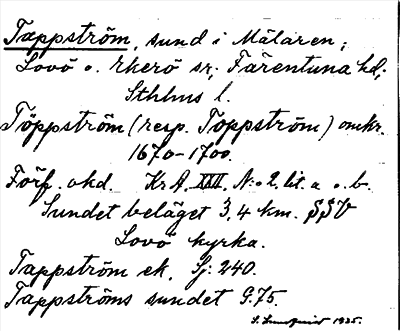 Tappström, sund i Mälaren;
Lovö o. Ekerö sr; Färentuna hd;
Sthlms l.
Töppström (resp. Toppström) omkr.
1670-1700.
Förf. okd. KrA. XXII. N:o 2, lit. a o. b.
Sundet beläget 3,4 km. SSV
Lovö kyrka.
Tappström ek. Sj: 240.
Tappströms sundet G.75.
S. 1935.